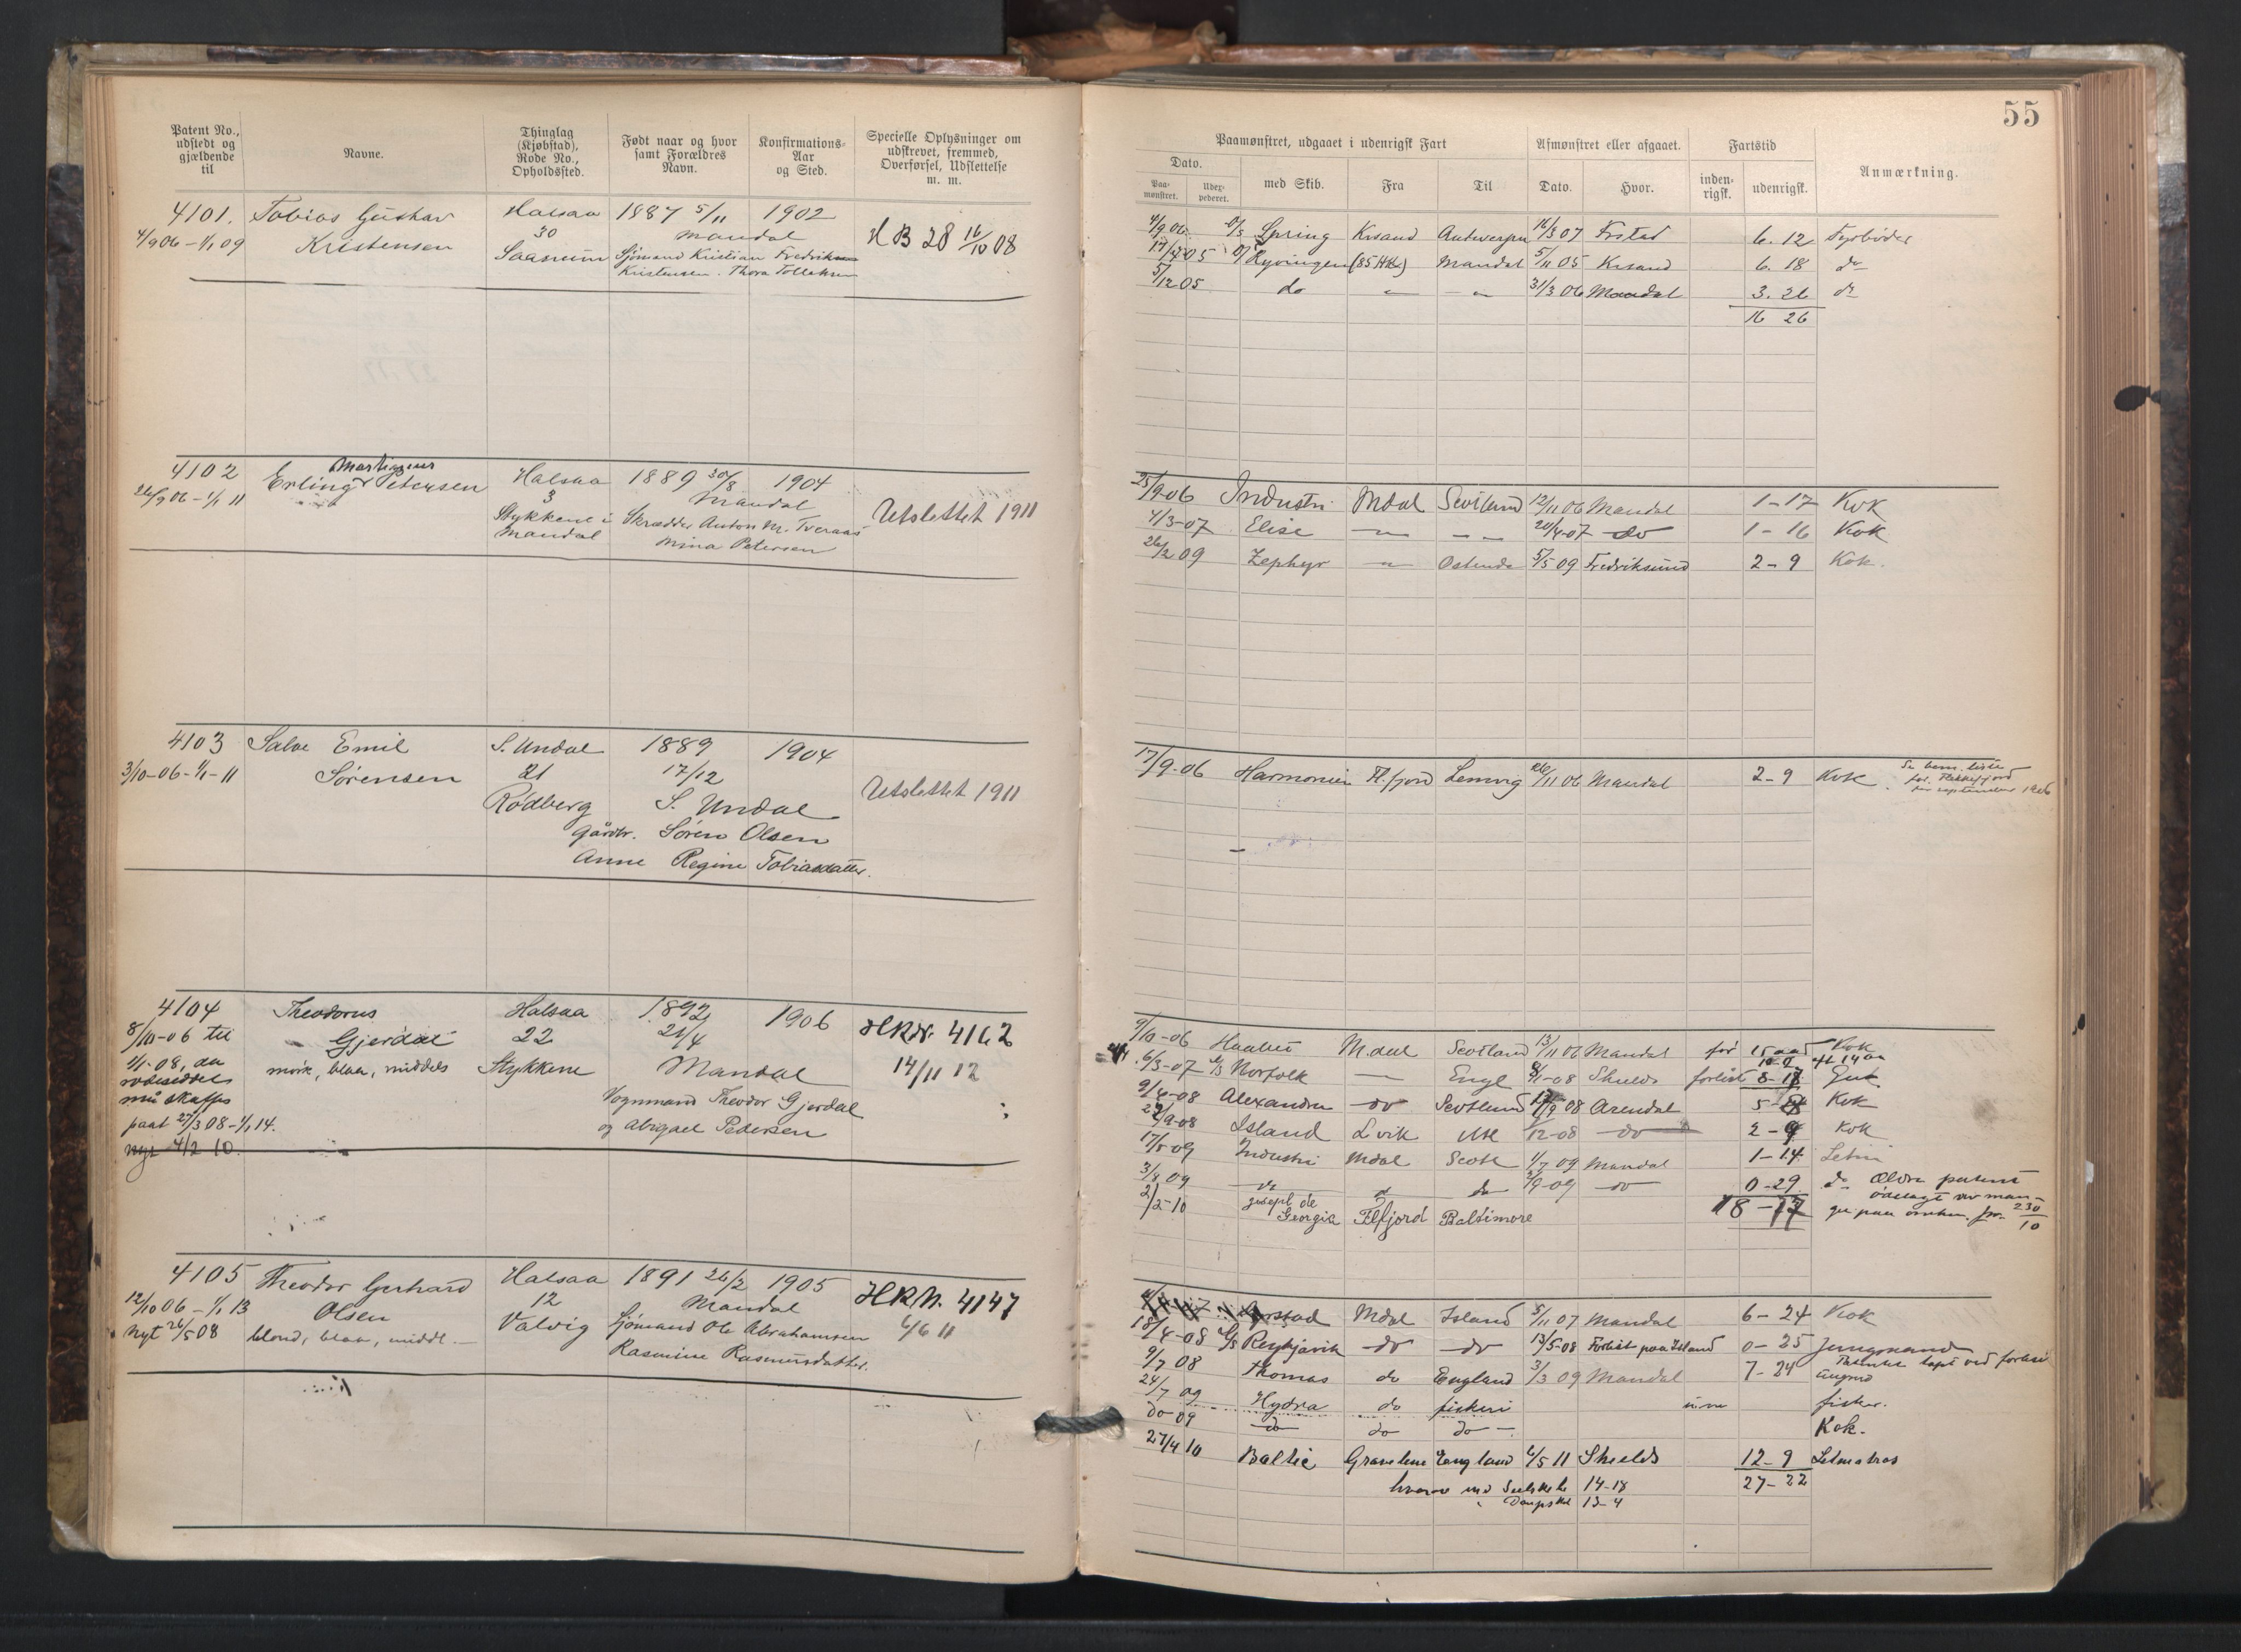 Patent No., udstedt og gjældende til
Navne.
Thinglag (Kjøbstad). Rode No., Opholdssted.
Født naar og hvor samt Forældres Navn.
Konfirmations-Aar og Sted.
Specielle Oplysninger om udskrevet, fremmed, Overførsel, Udslettelse m. m.
4101. Tobias Gustav Halsaa 1887 5/11 1902
4/9 06 – 1/1 09 Kristensen 30 Mandal H B 28 16/10 08
Saanum Sjømand Kristian Fredrik
Kristensen. Thora Tollaksen
4102 Martinius
Erling Petersen Halsaa 1889 30/8 1904
26/9 06 – 1/1 11 3 Mandal
Stykkene i Skrædder Anton M. Tveraas Utslettet 1911
Mandal Mina Petersen
4103 Salve Emil S. Undal 1889 1904
3/10-06 - 1/1-11 Sørensen 21 17/12 Utslettet 1911
Rødberg S. Undal
gårdbr. Søren Olsen
Anne Regine Tobiasdatter.
4104 Theodorus Halsaa 1892 1906 HRN. 4162
8/10-06 til Gjerdal 22 21/4 14/11 12
1/1-08, da mørk, blaa, middels Stykkene Mandal
rodeseddel
må skaffes Vognmand Theodor Gjerdal
paat 27/3 08 - 1/1 14. og Abigael Pedersen
nyt 4/2 10.
4105 Theodor Gerhard Halsaa 1891 26/2 1905 HRN. 4147
12/10 06 – 1/1 13 Olsen 12 Mandal 6/6 11
Nyt 26/5 08 blond, blaa, middl. Valvig Sjømand Ole Abrahamsen
Rasmine Rasmusdatter.
55
Paamønstret, udgaaet i udenrigsk Fart
Afmønstret eller afgaaet.
Fartstid
Anmærkning.
Dato.
Paa-mønstret.
Udex-pederet.
med Skib.
Fra
Til
Dato.
Hvor.
inden-rigsk.
udenrigsk.
4/9 06 D/S Spring Krsand Antwerpen 16/3 07 Frstad 6. 12 Fyrbøder
17/4 05 D/ Ryvingen (85 HK) Mandal 5/11 05 Krsand 6. 18 do
5/12 05 do " " 31/3 06 Mandal 3. 26 do
16 26
25/9-06 Industri Mdal Scotland 12/11 06 Mandal 1-17 Kok
4/3-07 Elise — — 20/4-07 do 1-16 Kok
26/2 09 Zephyr " Ostende 5/5 09 Fredriksund 2-9 Kok.
17/9-06 Harmonien Fl.fjord Lemvig 26/11 06 Mandal 2-9 Kok. Se bem. liste
for Flekkefjord
for september 1906
9/10-06 Haabet M.dal Scotland 13/11 06 Mandal før 15 aar Kok
6/3-07 S/S Norfolk — Engl 8/1-08 Shields forlist 8-17
9/4-08 Alexandra do Scotland 9 08 Arendal 5- Kok
9-08 Island L.vik 12-08 do 2-9 Kok
17/5-09 Industri Mdal Scotl 1/7 09 Mandal 1-14
3/8 09 do do 2/9-09 do 0-29 do Ældre patent
ødelagt
2/2-10 Joseph de
Georgia Flfjord Baltimore 18-17
Mdal Island 5/11 07 Mandal 6-24 Kok
18/4-08 S/S Reykjavik do do 13/5-08 Forlist paa Island 0-25 Jungmand
Patentet tapt ved forlis
9/7 08 Thomas do England 3/3 09 Mandal 7-24
24/7 09 Hydra do fiskeri fisker.
do 09 do do do Kok.
27/4 10 Baltic Gravelene England 6/5 11 Shields 12-9 Letmatros
hvorav med Seilsk 14-18 27-22
" Dampsk 13-4